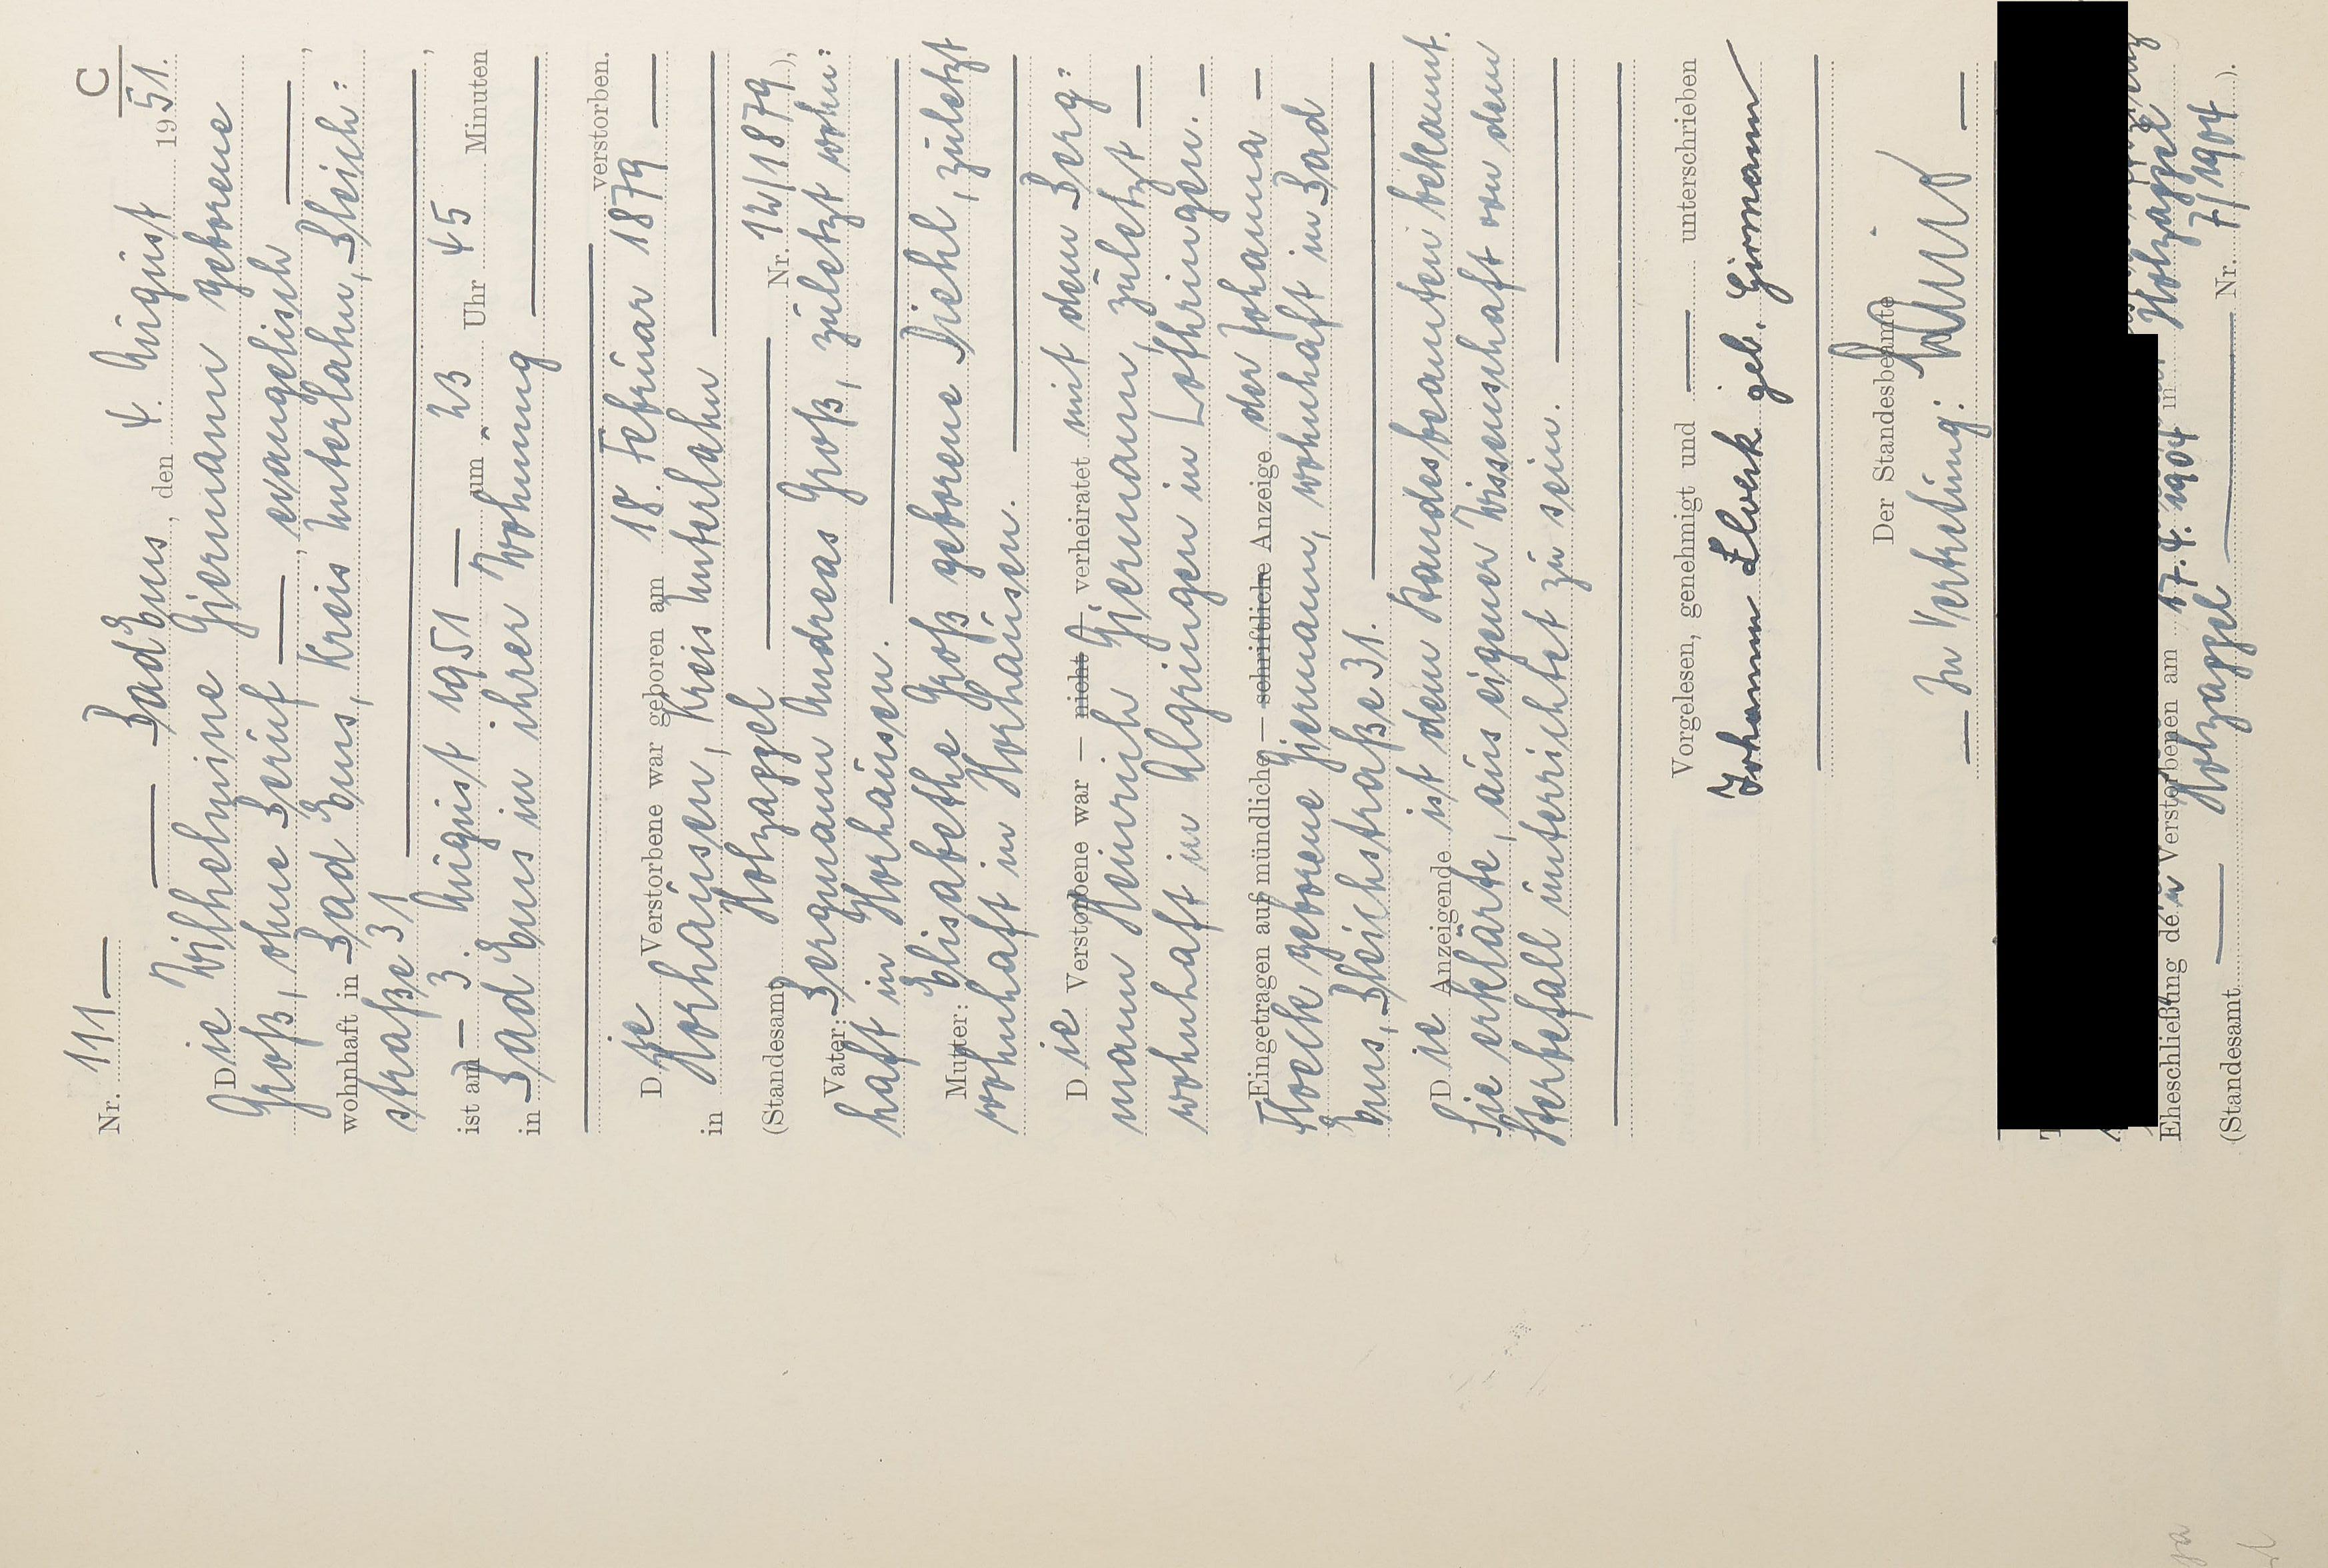 C
Nr. 111
Bad Ems, den 4. August 1951.
Die Wilhelmine Giermann geborene
Groß, ohne Beruf —, evangelisch —,
wohnhaft in Bad Ems, Kreis Unterlahn, Bleich:
straße 31 —,
ist am — 3. August 1951 — um 23 Uhr 45 Minuten
in Bad Ems in ihrer Wohnung —
verstorben.
Die Verstorbene war geboren am 18. Februar 1879 —
in Horhausen, Kreis Unterlahn —
(Standesamt Holzappel — Nr. 12/1879),
Vater: Bergmann Andreas Groß, zuletzt wohn:
haft in Horhausen. —
Mutter: Elisabethe Groß geborene Diehl, zuletzt
wohnhaft in Horhausen. —
Die Verstorbene war — nicht — verheiratet mit dem Berg:
mann Heinrich Giermann, zuletzt —
wohnhaft in Algringen in Lothringen. —
Eingetragen auf mündliche — schriftliche Anzeige der Johanna —
geborene Giermann, wohnhaft in Bad
Ems, Bleichstraße 31. —
Die Anzeigende ist dem Standesbeamten bekannt.
Sie erklärte, aus eigener Wissenschaft von dem
Sterbefall unterrichtet zu sein. —
Vorgelesen, genehmigt und — unterschrieben
Johanna geb. Girmann
Der Standesbeamte
— In Vertretung: —
Eheschließung der Verstorbenen am 17.4.1904 in Holzappel
(Standesamt — Holzappel — Nr. 7/1904).